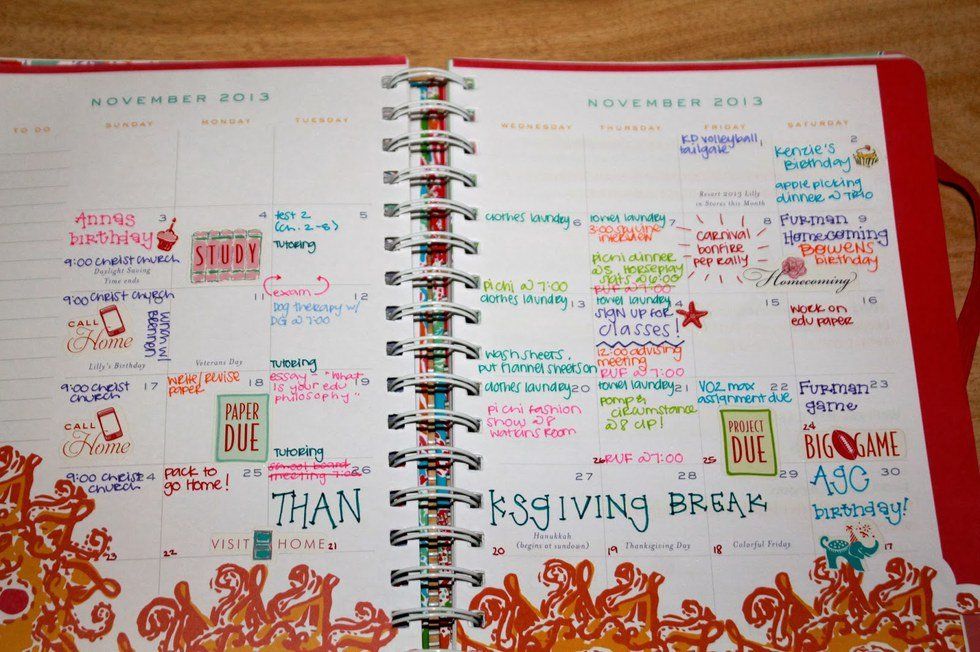 NOVEMBER 2013
TO DO
SUNDAY
MONDAY
TUESDAY
3
Annas
birthday
9:00 Christ Church
Daylight Saving
Time ends
4
STUDY
5
test 2
(ch. 2-8)
Tutoring
9:00 Christ Church
CALL
Home
lunch w/
Lilly's Birthday
11
Veterans Day
exam
12
Dog therapy w/
DG @ 7:00
Tutoring
9:00 Christ
church
17
CALL
Home
write/revise
paper
18
PAPER
DUE
19
essay - "What
is your edu
philosophy"
Tutoring
9:00 Christ
Church
4
23
pack to
go Home!
25
22
VISIT HOME
21
school board
meeting
26
THAN
NOVEMBER 2013
WEDNESDAY
THURSDAY
FRIDAY
SATURDAY
KD volleyball,
tailgate
Resort 2013 Lilly
in Stores this Month
2
Kenzie's
Birthday
apple picking
dinner @ TRIO
clothes laundry
6
Pi chi @ 7:00
towel laundry
7
3:00
interview
pichi dinner
@5, Horseplay
skits @ 6:00
RUF @ 7:00
8
CARNIVAL
bonfire
pep rally
Furman
9
Homecoming
BOWENS
birthday
Homecoming
clothes laundry
13
wash sheets,
put flannel sheets on
towel laundry
4
SIGN UP FOR
classes!
12:00 advising
meeting
RUF @ 7:00
15
16
WORK on
edu paper
clothes laundry
20
pi chi fashion
show @8
Watkins Room
towel laundry
21
pomp &
circumstance
@8 CIP!
RUF @ 7:00
26
VO2 max
22
assignment due
PROJECT
DUE
25
Furman
23
game
24
BIG GAME
27
KSGIVING BREAK
Hanukkah
(begins at sundown)
20
28
19
Thanksgiving Day
29
18
Colorful Friday
30
AGC
birthday!
17